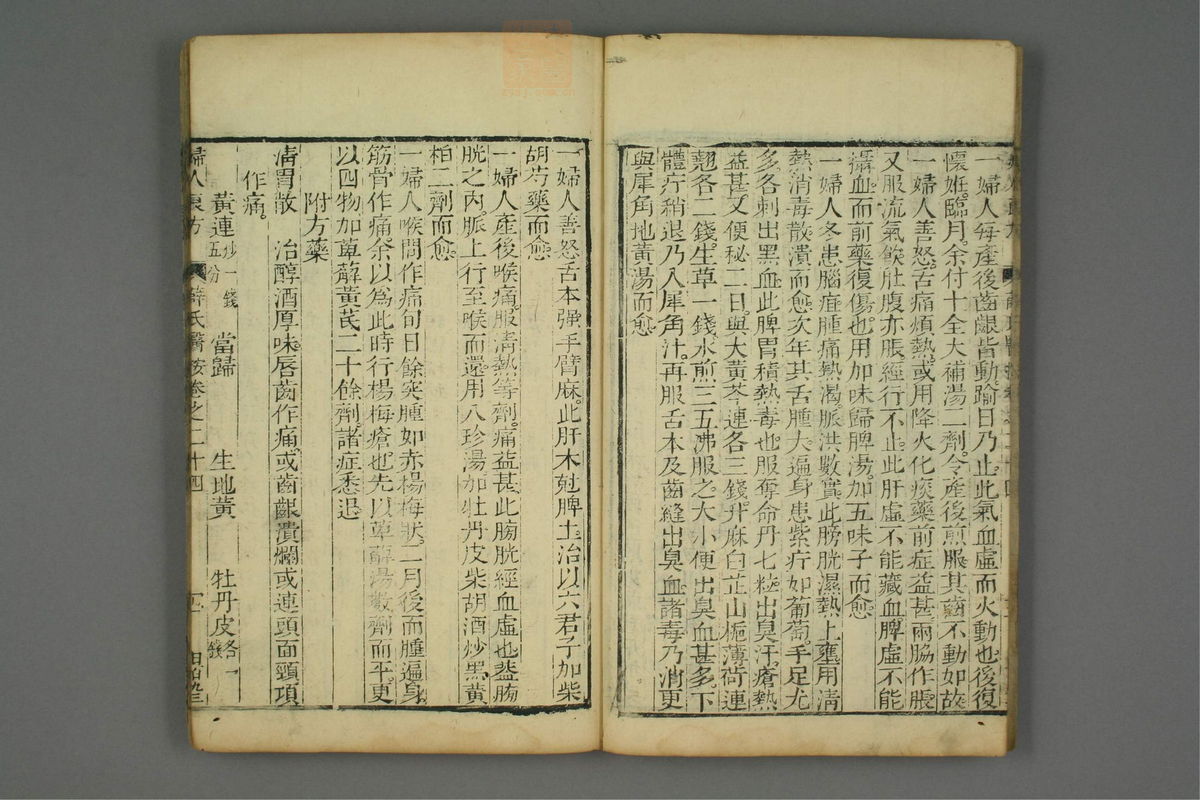 一婦人每產後齒齦皆動踰日乃止此氣血虛而火動也後復
懷妊臨月余付十全大補湯二劑令產後煎服其齒不動如故
一婦人善怒舌痛煩熱或用降火化痰藥前症益甚兩脇作脹
又服流氣飲肚腹亦脹經行不止此肝虛不能藏血脾虛不能
攝血而前藥復傷也用加味歸脾湯加五味子而愈
一婦人冬患腦疽腫痛熱渴脈洪數實此膀胱濕熱上壅用清
熱消毒散潰而愈次年其舌腫大遍身患紫疔如葡萄手足尤
多各刺出黑血此脾胃積熱毒也服奪命丹七粒出臭汗瘡熱
益甚又便秘二日與大黃芩連各三錢升麻白芷山梔薄荷連
翹各二錢生草一錢水煎三五沸服之大小便出臭血甚多下
體疔稍退乃入犀角汁再服舌本及齒縫出臭血諸毒乃消更
與犀角地黃湯而愈
一婦人善怒舌本强手臂麻此肝木尅脾土治以六君子加柴
胡芍藥而愈
一婦人產後喉痛服清熱等劑痛益甚此膀胱經血虛也葢膀
胱之內脈上行至喉而還用八珍湯加牡丹皮柴胡酒炒黑黃
柏二劑而愈
一婦人喉間作痛旬日餘突腫如赤楊梅狀二月後而腫遍身
筋骨作痛余以為此時行楊梅瘡也先以萆薢湯數劑而平更
以四物加萆薢黃芪二十餘劑諸症悉退
附方藥
清胃散　治醇酒厚味唇齒作痛或齒齦潰爛或連頭面頸項
作痛
黃連炒一錢五分　當歸　生地黃　牡丹皮各一錢
婦人良方　薛氏醫按卷之二十四